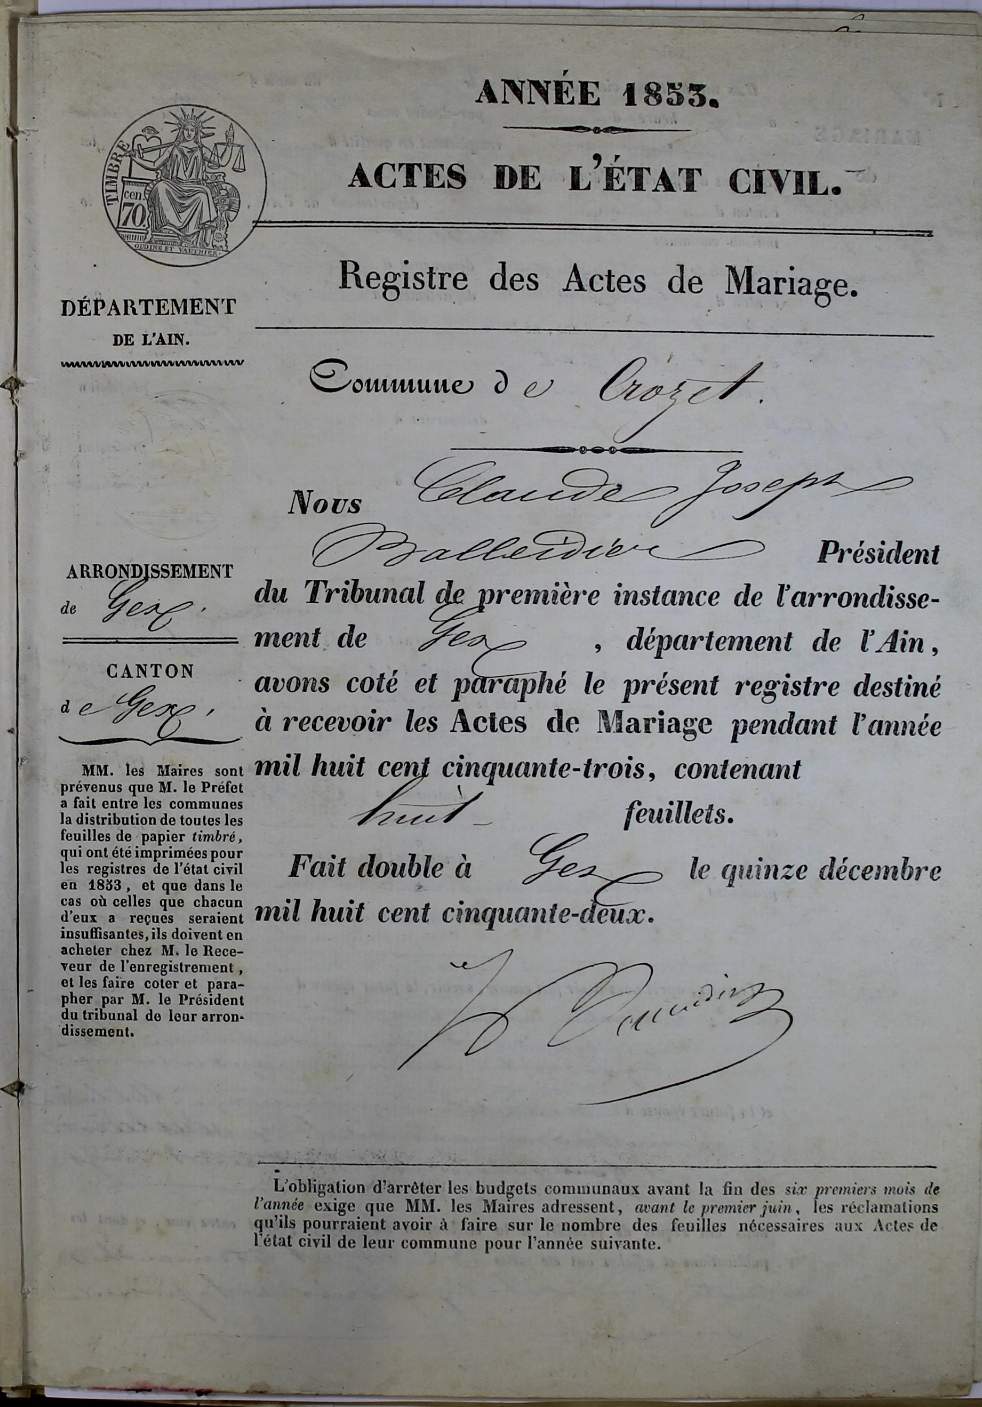 ANNÉE 1853.
ACTES DE L'ÉTAT CIVIL.
TIMBRE
cen
70
Registre des Actes de Mariage.
DÉPARTEMENT
DE L'AIN.
Commune de Crozet.
Nous Claude Joseph
Balleidier Président
du Tribunal de première instance de l'arrondisse-
ment de Gex, département de l'Ain,
avons coté et paraphé le présent registre destiné
à recevoir les Actes de Mariage pendant l'année
mil huit cent cinquante-trois, contenant
huit feuillets.
Fait double à Gex le quinze décembre
mil huit cent cinquante-deux.
ARRONDISSEMENT
de Gex.
CANTON
de Gex.
MM. les Maires sont
prévenus que M. le Préfet
a fait entre les communes
la distribution de toutes les
feuilles de papier timbré,
qui ont été imprimées pour
les registres de l'état civil
en 1853, et que dans le
cas où celles que chacun
d'eux a reçues seraient
insuffisantes, ils doivent en
acheter chez M. le Rece-
veur de l'enregistrement,
et les faire coter et para-
pher par M. le Président
du tribunal de leur arron-
dissement.
L'obligation d'arrêter les budgets communaux avant la fin des six premiers mois de
l'année exige que MM. les Maires adressent, avant le premier juin, les réclamations
qu'ils pourraient avoir à faire sur le nombre des feuilles nécessaires aux Actes de
l'état civil de leur commune pour l'année suivante.